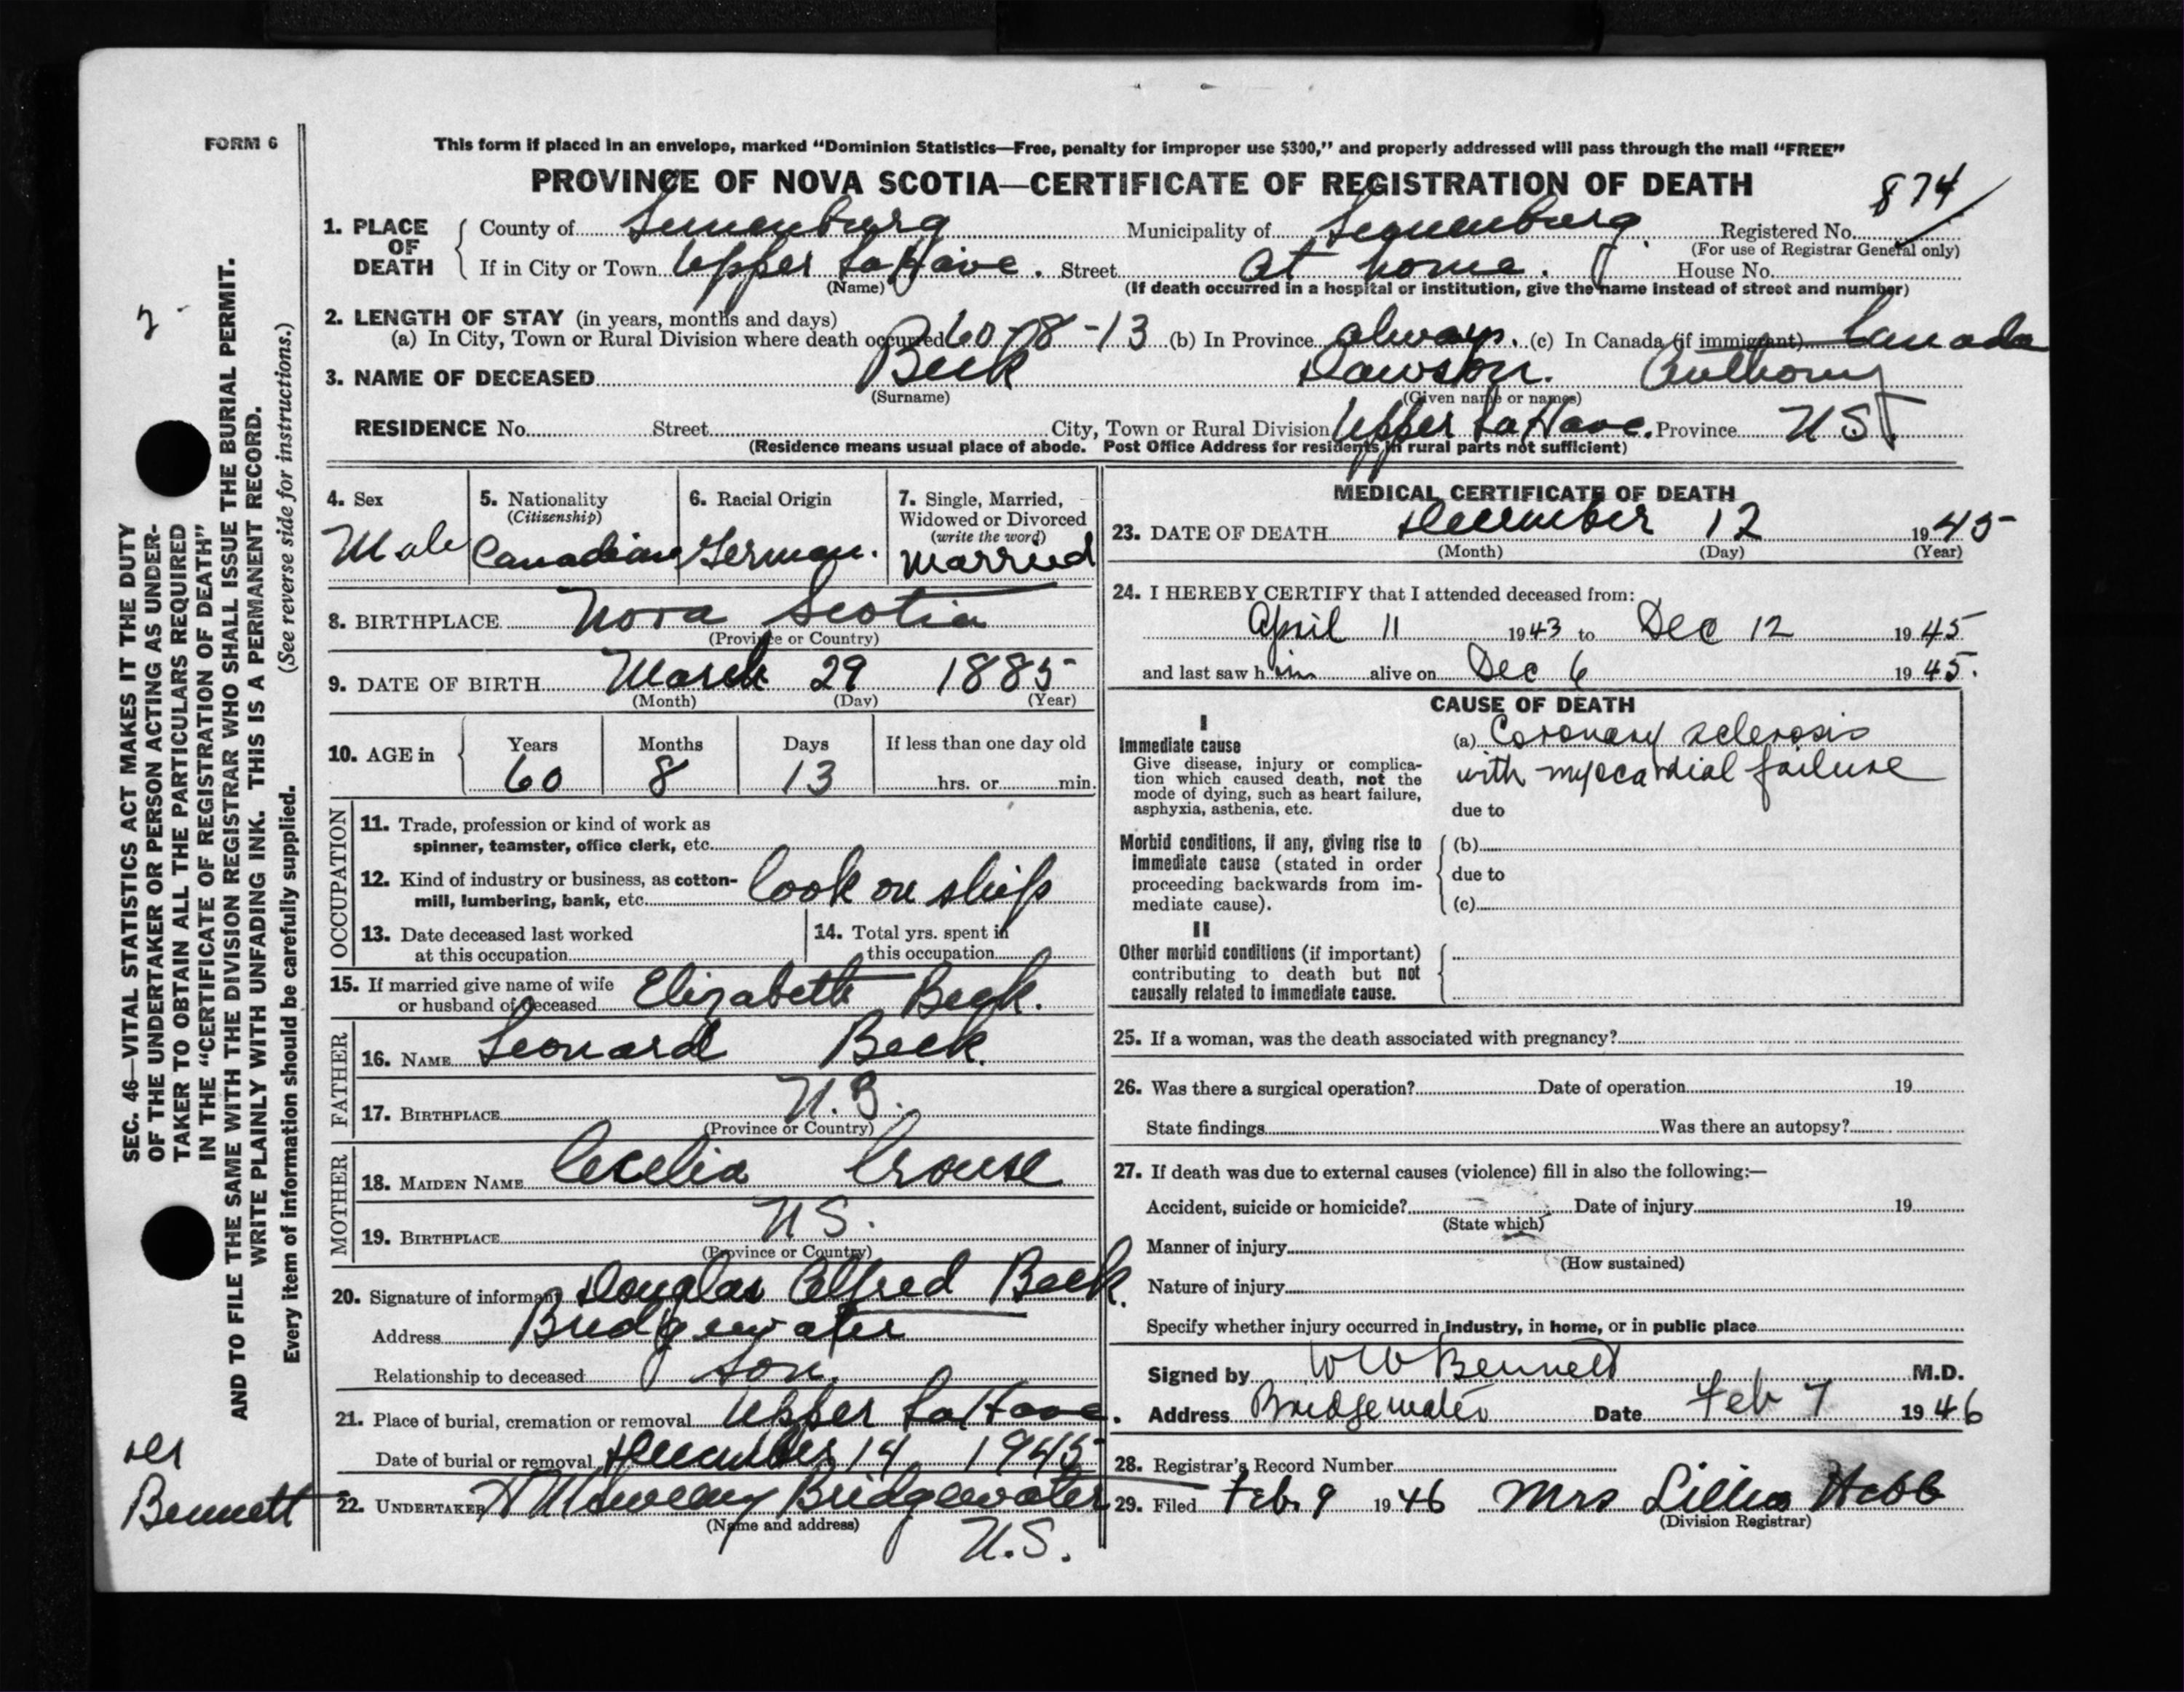 FORM 6
This form if placed in an envelope, marked “Dominion Statistics—Free, penalty for improper use $300,” and properly addressed will pass through the mail “FREE”
PROVINCE OF NOVA SCOTIA—CERTIFICATE OF REGISTRATION OF DEATH
874
1. PLACE OF DEATH
County of Lunenburg Municipality of Lunenburg Registered No.
(For use of Registrar General only)
If in City or Town Upper LaHave. Street At home. House No.
(Name) (If death occurred in a hospital or institution, give the name instead of street and number)
2. LENGTH OF STAY (in years, months and days)
(a) In City, Town or Rural Division where death occurred 60-8-13 (b) In Province always. (c) In Canada (if immigrant) Canada
3. NAME OF DECEASED Beck Dawson. Anthony
(Surname) (Given name or names)
RESIDENCE No. Street City, Town or Rural Division Upper LaHave. Province N S
(Residence means usual place of abode. Post Office Address for residents in rural parts not sufficient)
4. Sex
Male
5. Nationality
(Citizenship)
Canadian
6. Racial Origin
German.
7. Single, Married,
Widowed or Divorced
(write the word)
Married
8. BIRTHPLACE Nova Scotia
(Province or Country)
9. DATE OF BIRTH March 29 1885
(Month) (Day) (Year)
10. AGE in
Years Months Days If less than one day old
60 8 13 hrs. or min.
OCCUPATION
11. Trade, profession or kind of work as
spinner, teamster, office clerk, etc.
12. Kind of industry or business, as cotton-
mill, lumbering, bank, etc. Cook on ship
13. Date deceased last worked
at this occupation
14. Total yrs. spent in
this occupation
15. If married give name of wife
or husband of deceased Elizabeth Beck.
FATHER
16. NAME Leonard Beck.
17. BIRTHPLACE N.S.
(Province or Country)
MOTHER
18. MAIDEN NAME Cecelia Crouse
19. BIRTHPLACE N S.
(Province or Country)
20. Signature of informant Douglas Alfred Beck.
Address Bridgewater
Relationship to deceased son.
21. Place of burial, cremation or removal Upper LaHave.
Date of burial or removal December 14 1945
22. UNDERTAKER Bridgewater
(Name and address)
N.S.
MEDICAL CERTIFICATE OF DEATH
23. DATE OF DEATH December 12 1945
(Month) (Day) (Year)
24. I HEREBY CERTIFY that I attended deceased from:
April 11 1943 to Dec 12 1945
and last saw him alive on Dec 6 1945.
CAUSE OF DEATH
I
Immediate cause
Give disease, injury or complica-
tion which caused death, not the
mode of dying, such as heart failure,
asphyxia, asthenia, etc.
(a) Coronary sclerosis
with myocardial failure
due to
Morbid conditions, if any, giving rise to
immediate cause (stated in order
proceeding backwards from im-
mediate cause).
(b)
due to
(c)
II
Other morbid conditions (if important)
contributing to death but not
causally related to immediate cause.
25. If a woman, was the death associated with pregnancy?
26. Was there a surgical operation? Date of operation 19
State findings Was there an autopsy?
27. If death was due to external causes (violence) fill in also the following:—
Accident, suicide or homicide? Date of injury 19
(State which)
Manner of injury
(How sustained)
Nature of injury
Specify whether injury occurred in industry, in home, or in public place
Signed by W W Bennett M.D.
Address Bridgewater Date Feb 7 1946
28. Registrar's Record Number
29. Filed Feb. 9 1946 Mrs Hebb
(Division Registrar)
SEC. 46—VITAL STATISTICS ACT MAKES IT THE DUTY
OF THE UNDERTAKER OR PERSON ACTING AS UNDER-
TAKER TO OBTAIN ALL THE PARTICULARS REQUIRED
IN THE “CERTIFICATE OF REGISTRATION OF DEATH”
AND TO FILE THE SAME WITH THE DIVISION REGISTRAR WHO SHALL ISSUE THE BURIAL PERMIT.
WRITE PLAINLY WITH UNFADING INK. THIS IS A PERMANENT RECORD.
Every item of information should be carefully supplied. (See reverse side for instructions.)
Bennett